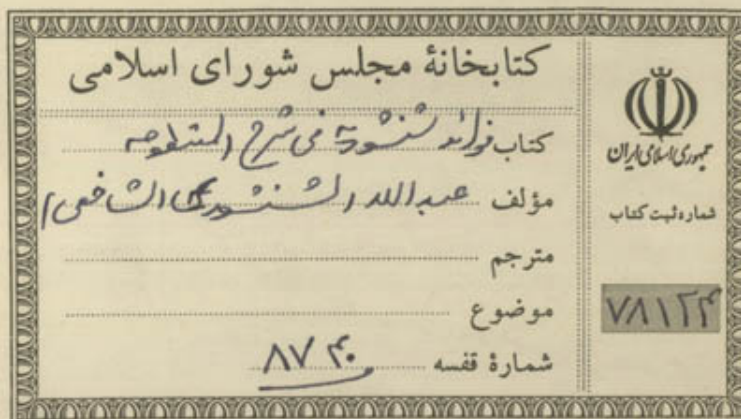 کتابخانهٔ مجلس شورای اسلامی
کتاب فوائد شنشوریه فی شرح المنظومه
مؤلف عبدالله الشنشوری الشافعی
مترجم
موضوع
شمارهٔ قفسه ۸۷۴۰
جمهوری اسلامی ایران
شماره ثبت کتاب
۷۸۱۲۴